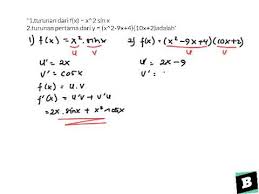 "1.turunan dari f(x) = x^2 sin x
2.turunan pertama dari y = (x^2-9x+4)(10x+2)adalah"
1) f(x) = x². sinx
u v
u' = 2x
v' = cosx
f(x) = u.v
f'(x) = u'v + v'u
= 2x . sinx + x² cosx
2) f(x) = (x²-9x+4)(10x+2)
u v
u' = 2x - 9
v' =